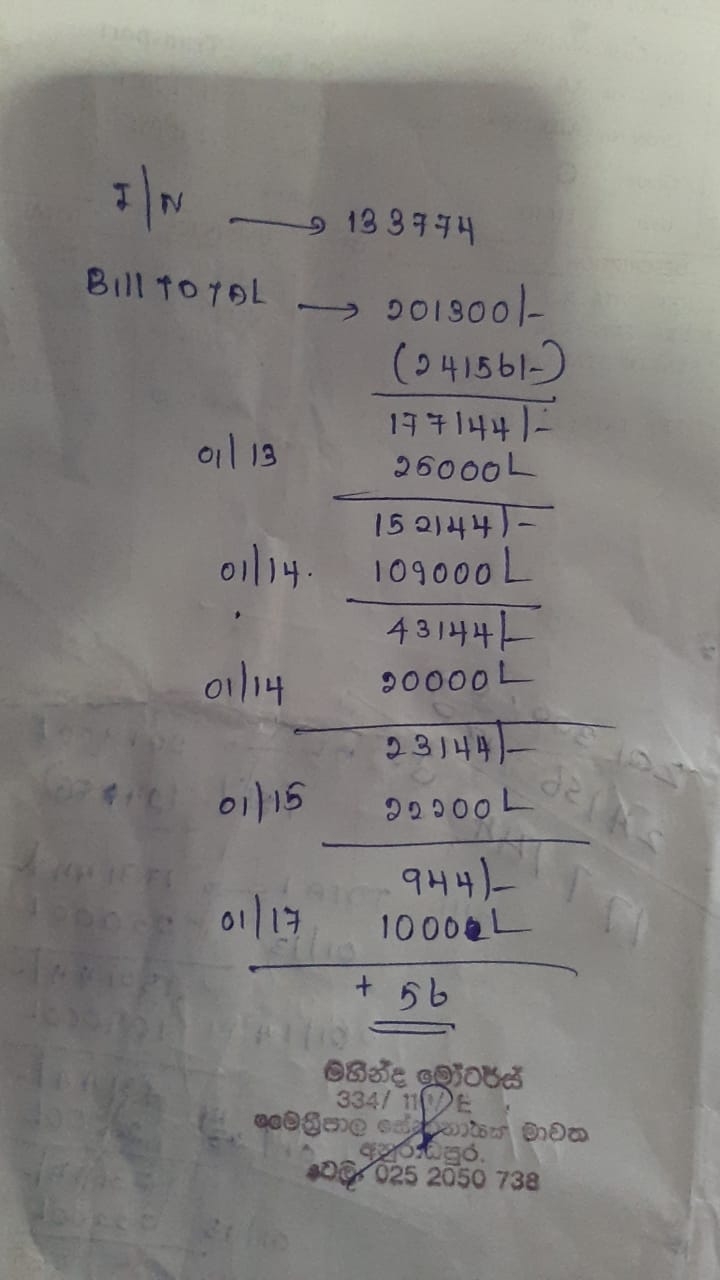 I/N → 133774
Bill TOTAL → 201300/-
(24156/-)
177144/-
01/13 25000/-
152144/-
01/14. 109000/-
43144/-
01/14 20000/-
23144/-
01/15 22200/-
944/-
01/17 1000/-
+ 56
මහින්ද මෝටර්ස්
334/
මෛත්‍රීපාල සේනානායක මාවත
අනුරාධපුර.
ටෙලි: 025 2050 738